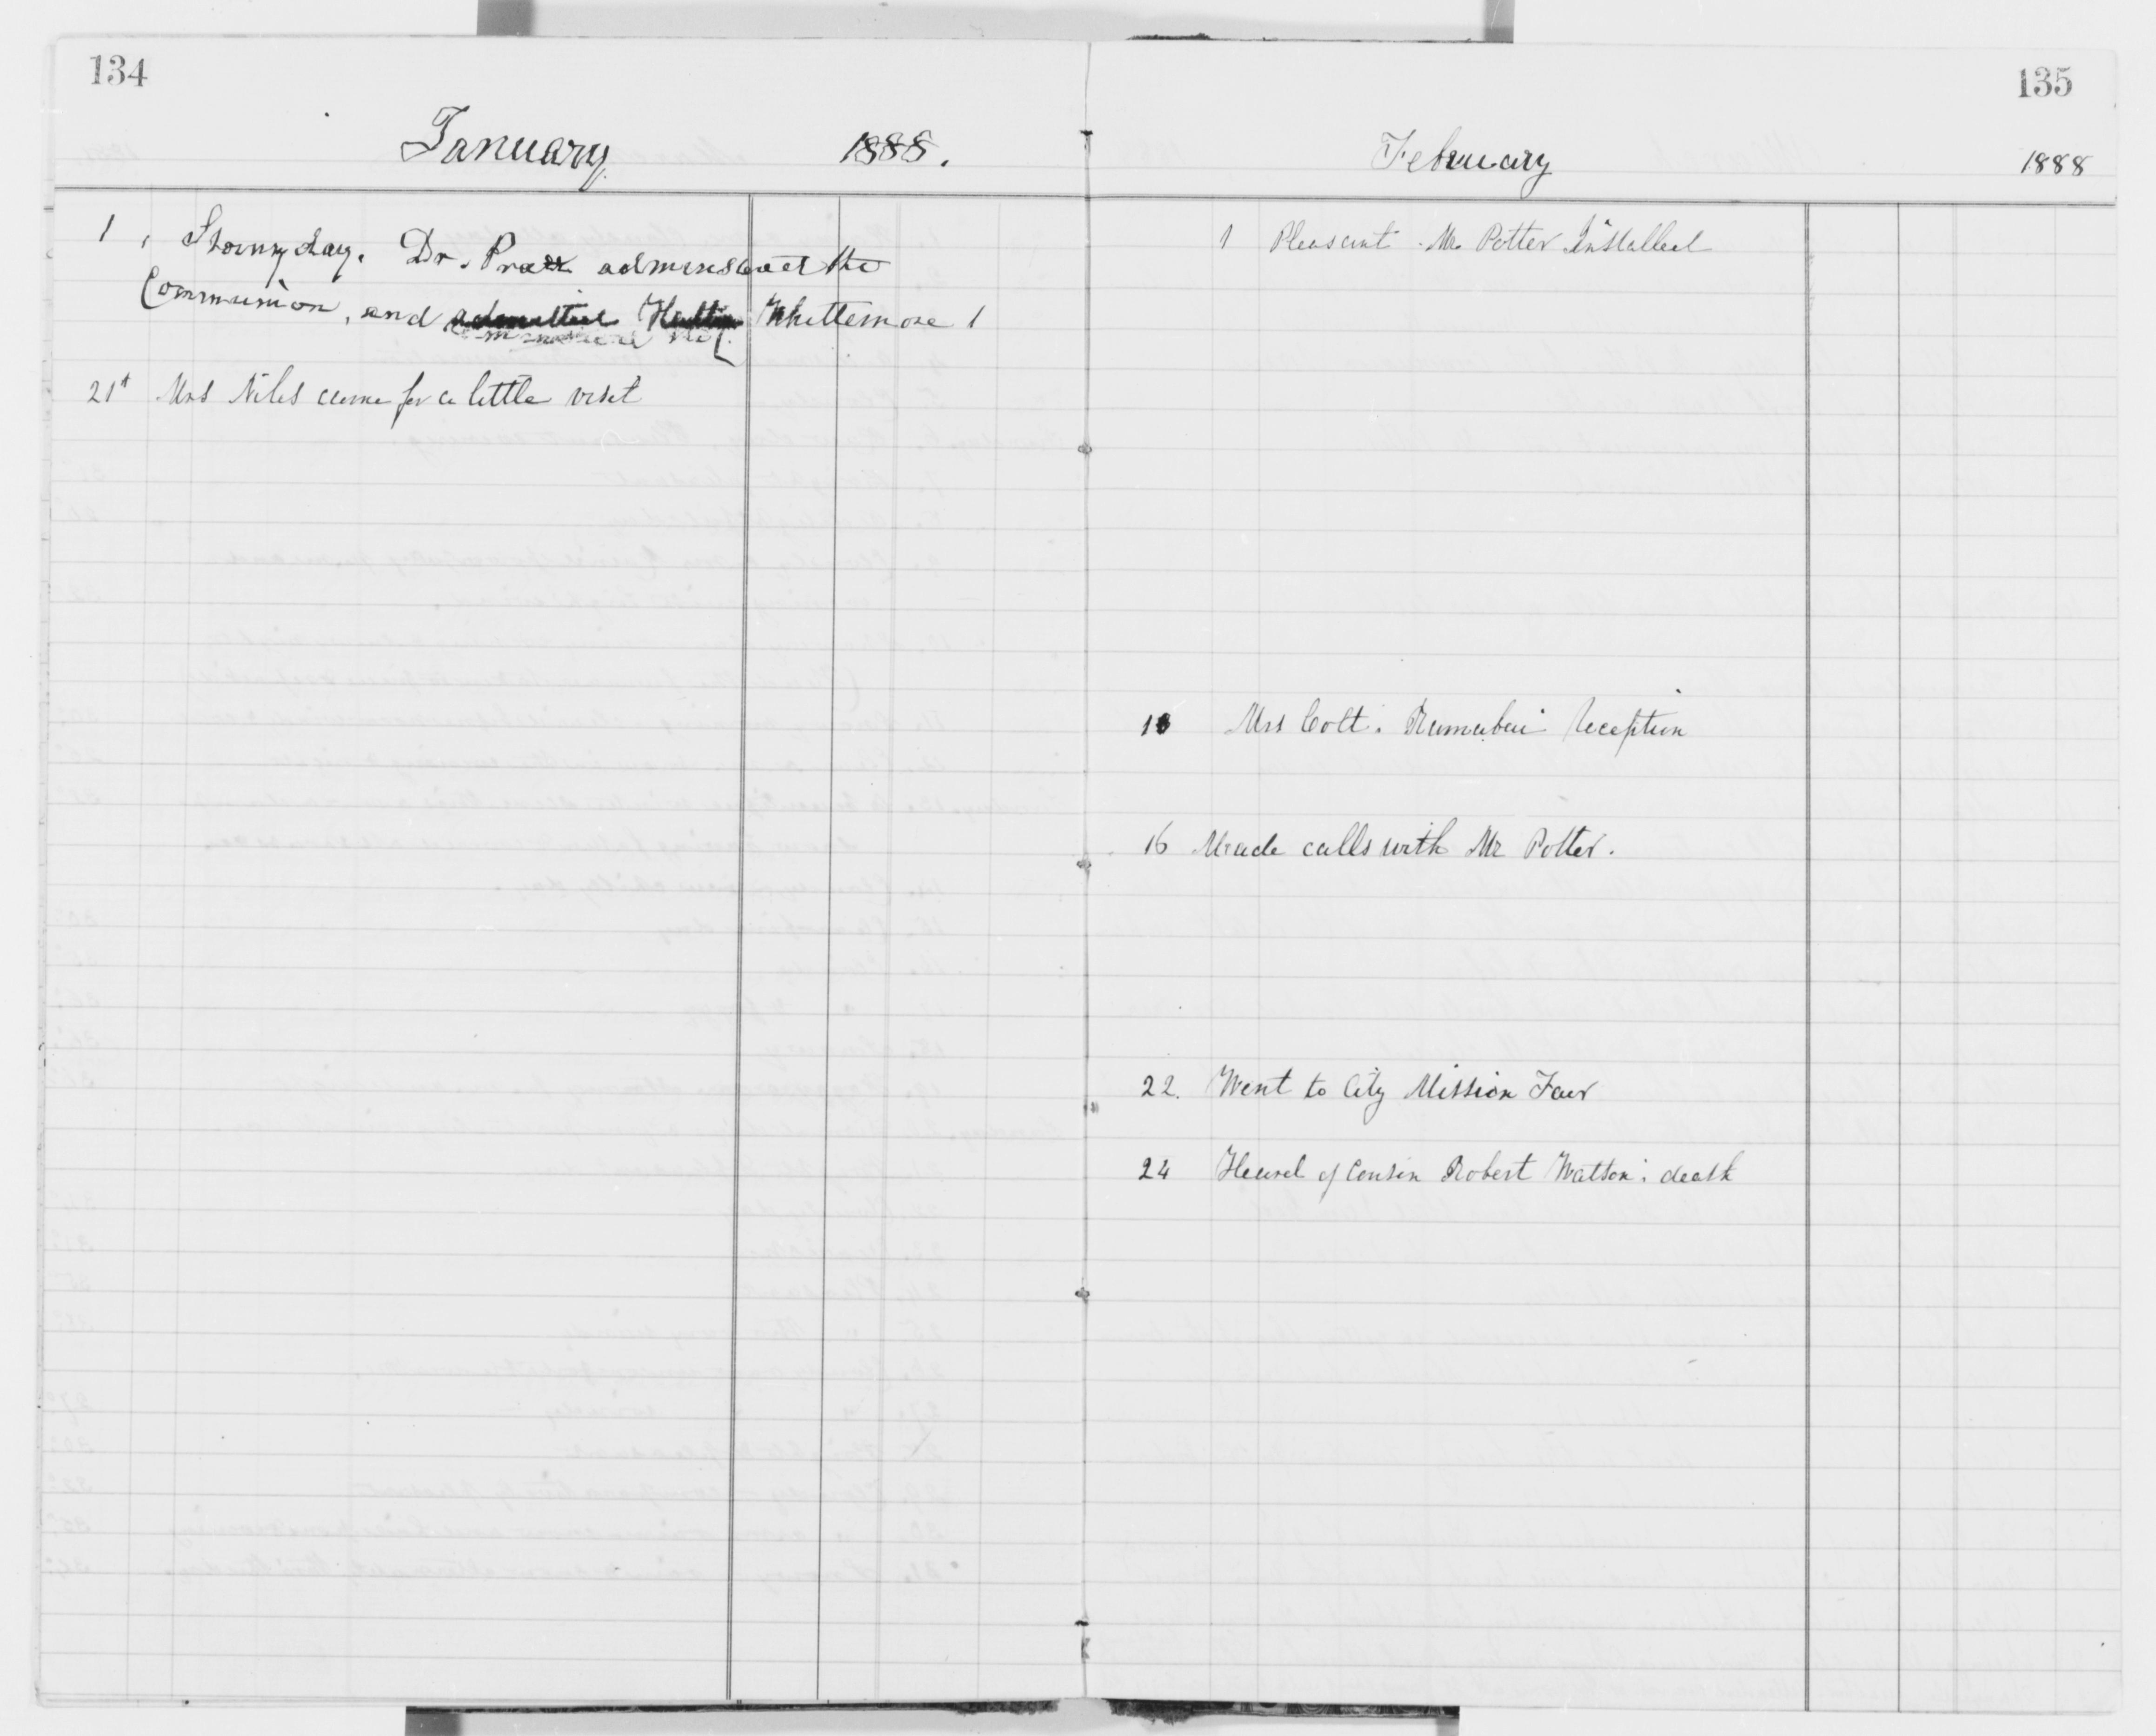 134
January 1888.
1 Stormy day. Dr. Pratt administered the
Communion, and admitted Hattie Whittemore 1
21st Mrs Niles came for a little visit
135
February 1888
1 Pleasant. Mr. Potter Installed
18 Mrs Colt. Ramabai Reception
16 Made calls with Mr Potter.
22. Went to City Mission Fair
24 Heard of Cousin Robert Watson's death